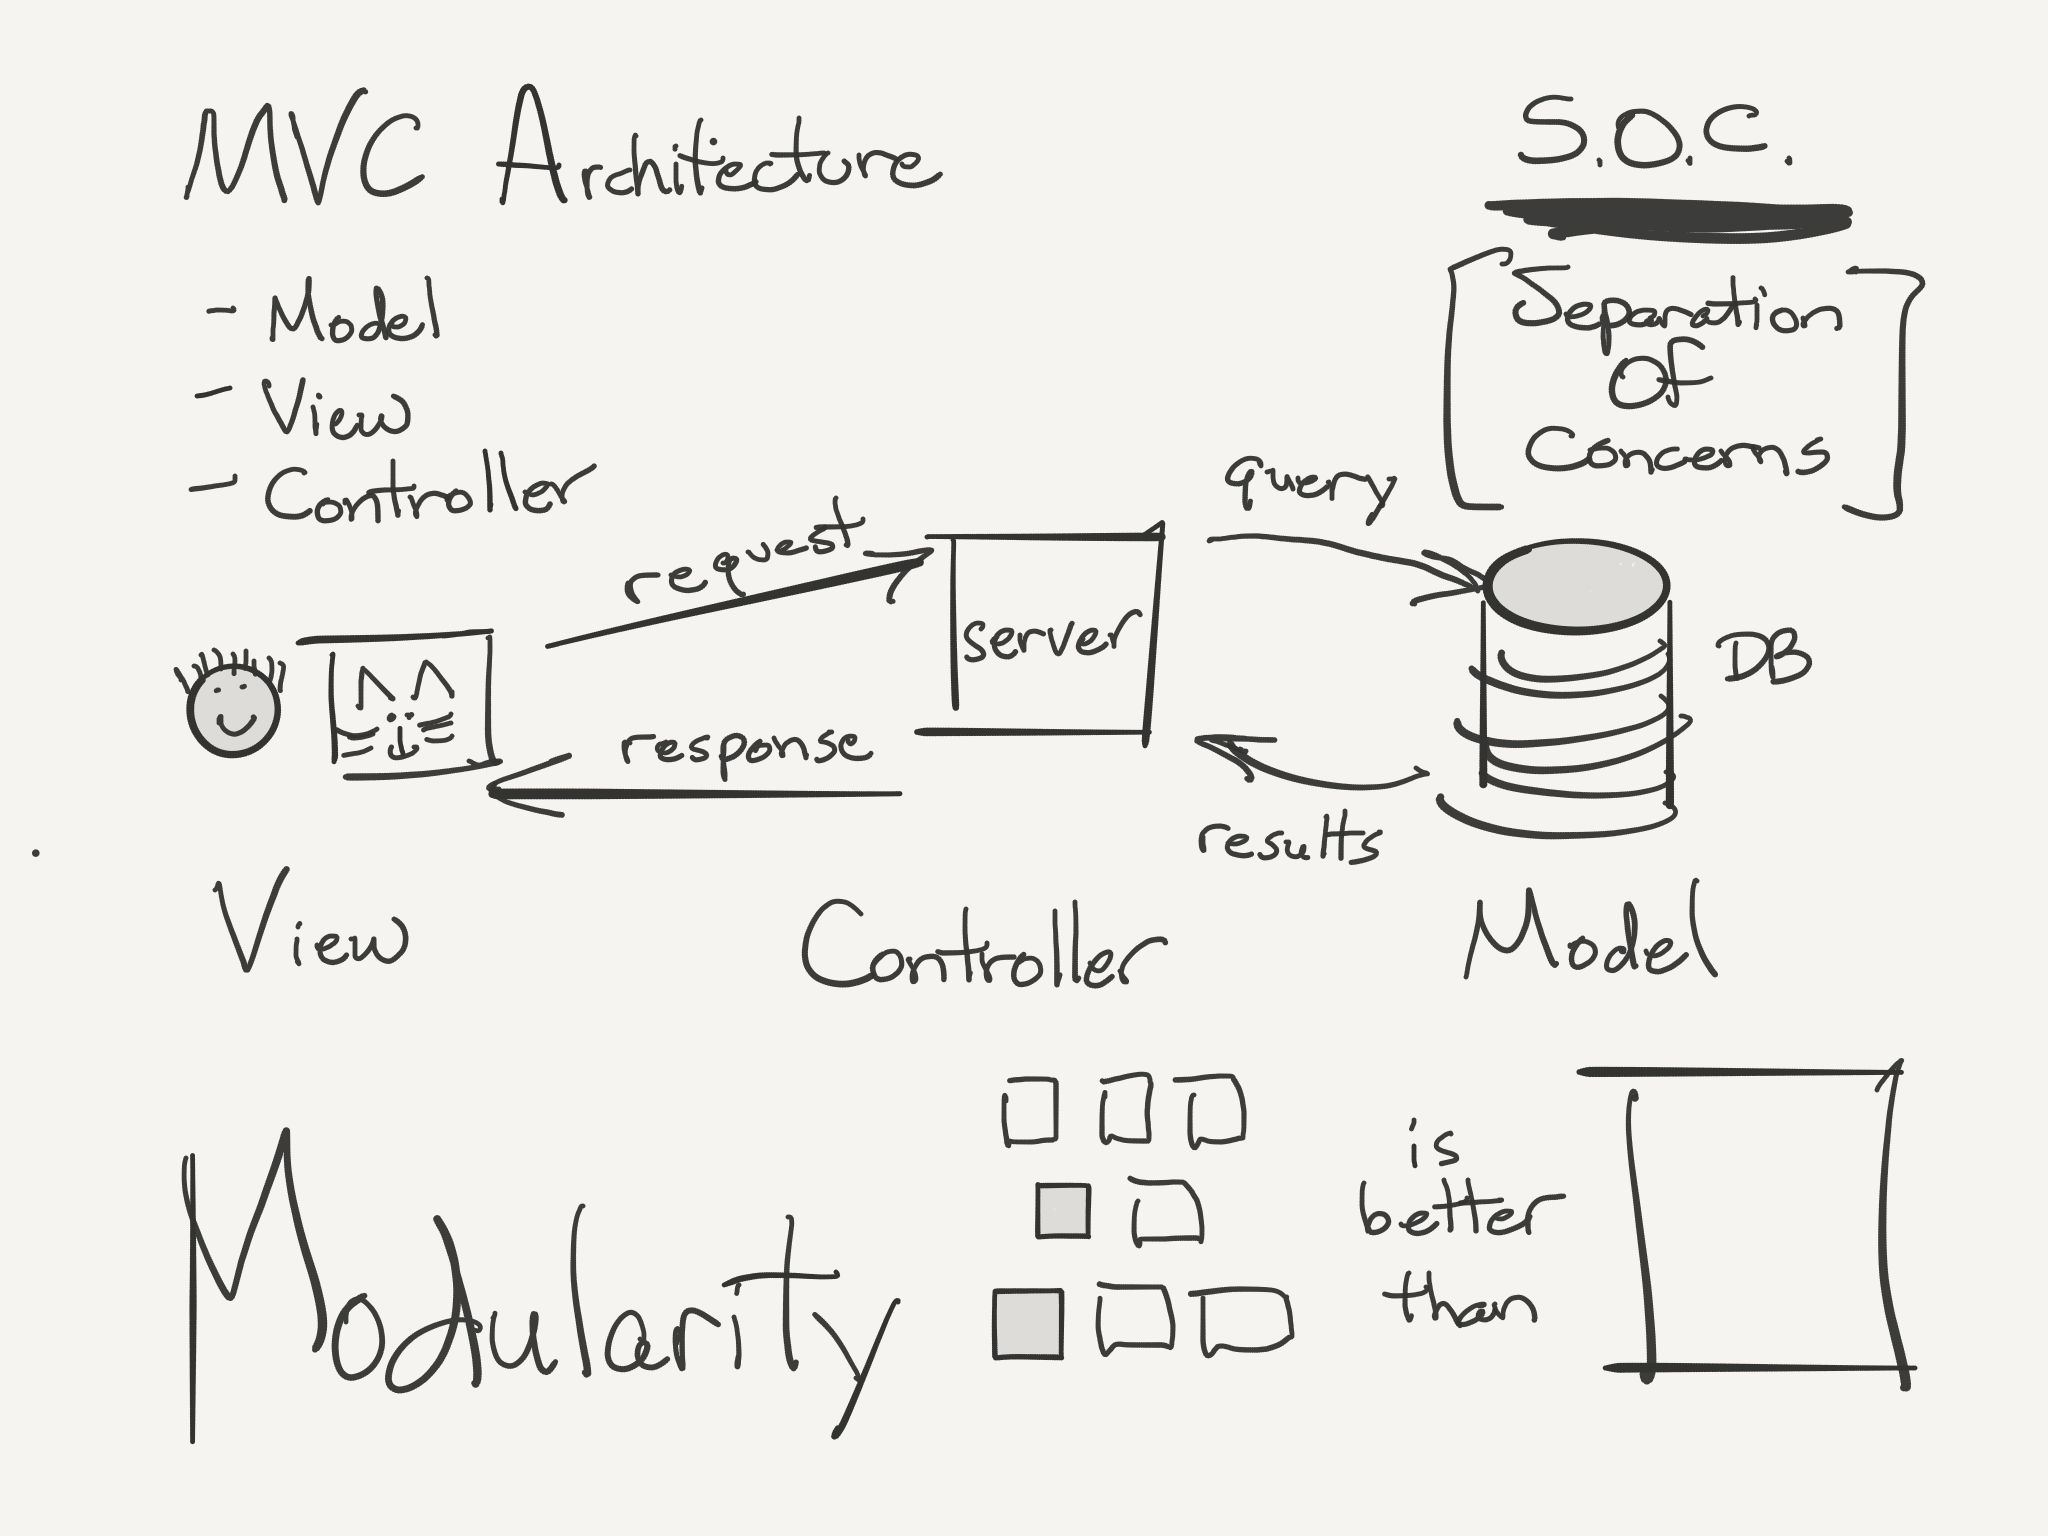 MVC Architecture
- Model
- View
- Controller
S.O.C.
[Separation
Of
Concerns]
request
server
query
DB
response
results
View
Controller
Model
Modularity
is
better
than